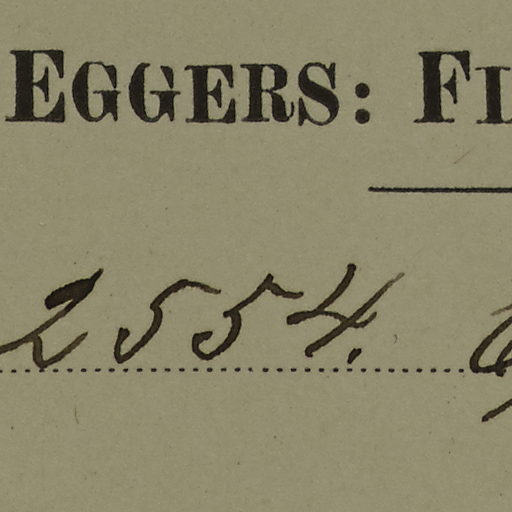 EGGERS: FL
2554.